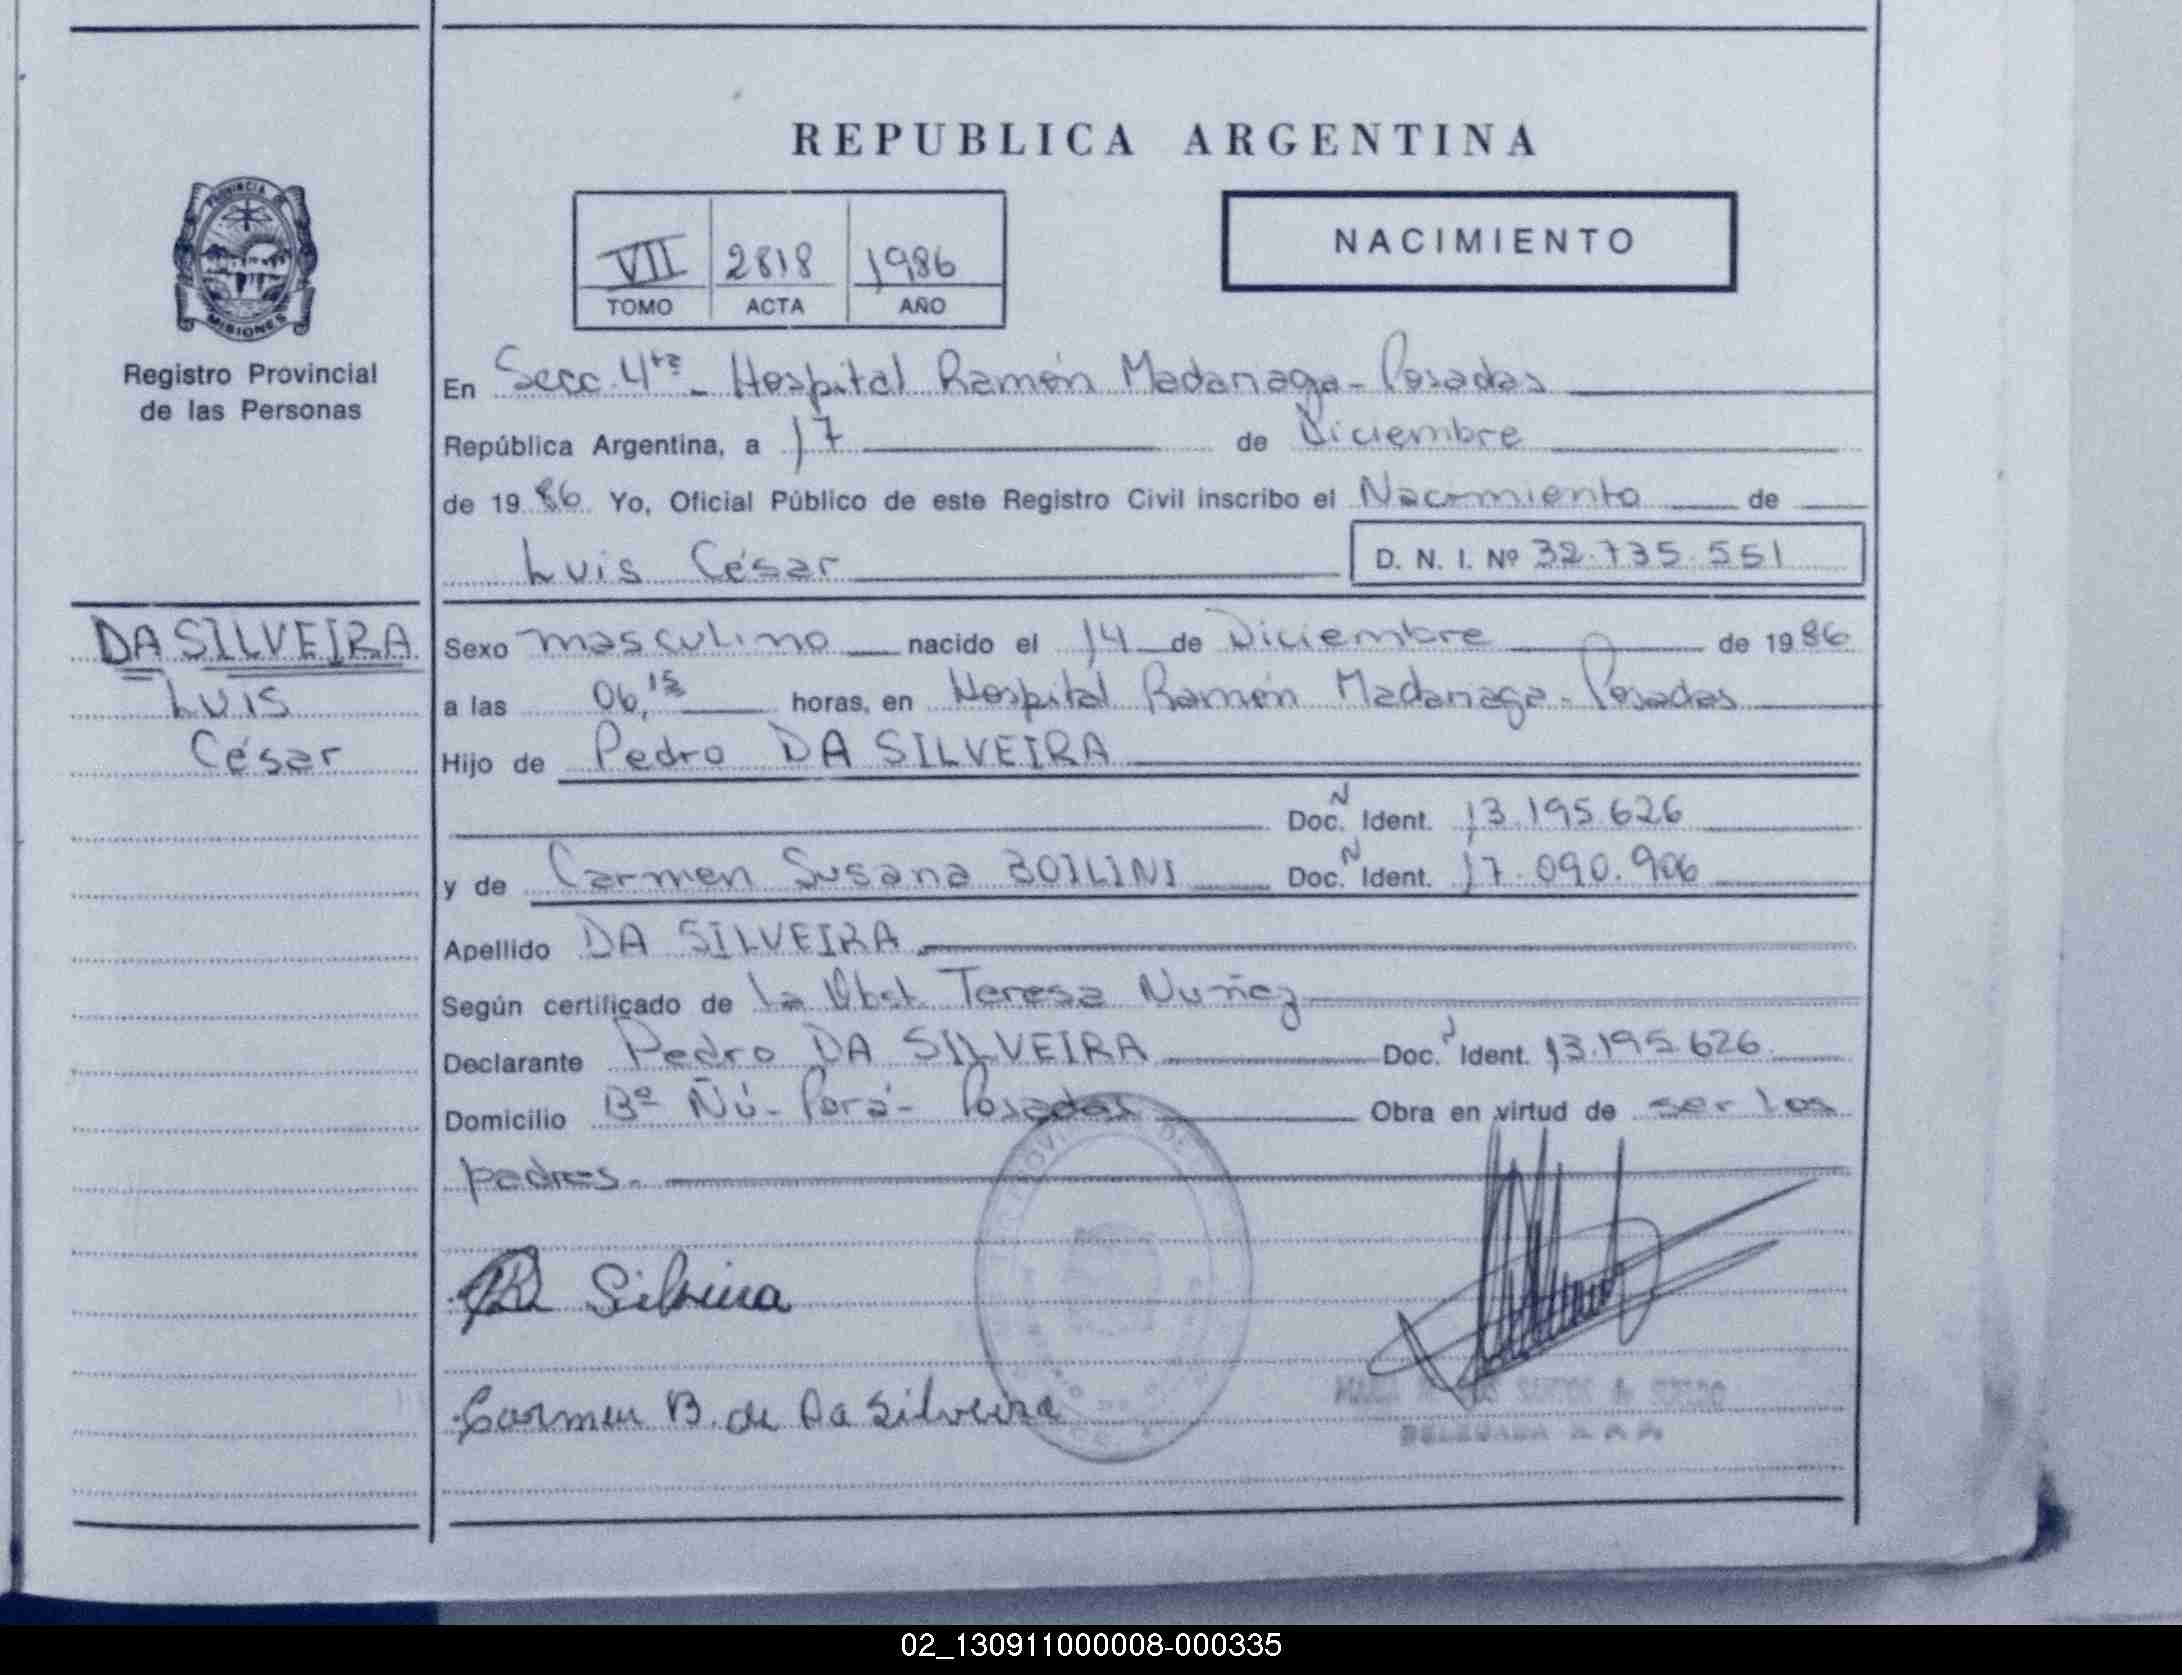 REPUBLICA ARGENTINA
PROVINCIA DE
MISIONES
Registro Provincial
de las Personas
VII 2818 1986
TOMO ACTA AÑO
NACIMIENTO
En Secc. 4ta - Hospital Ramón Madariaga - Posadas
República Argentina, a 17 de Diciembre
de 1986 Yo, Oficial Público de este Registro Civil inscribo el Nacimiento de
Luis César
D. N. I. Nº 32.735.551
DA SILVEIRA
Luis
César
Sexo masculino nacido el 14 de Diciembre de 1986
a las 06,15 horas, en Hospital Ramón Madariaga - Posadas
Hijo de Pedro DA SILVEIRA
Doc. N Ident. 13.195.626
y de Carmen Susana BOILINI Doc. N Ident. 17.090.906
Apellido DA SILVEIRA
Según certificado de la Obst. Teresa Nuñez
Declarante Pedro DA SILVEIRA Doc. N Ident. 13.195.626
Domicilio Bº Ñú - Porá - Posadas Obra en virtud de ser los
padres.
Silveira
Carmen B. de Da Silveira
02_130911000008-000335